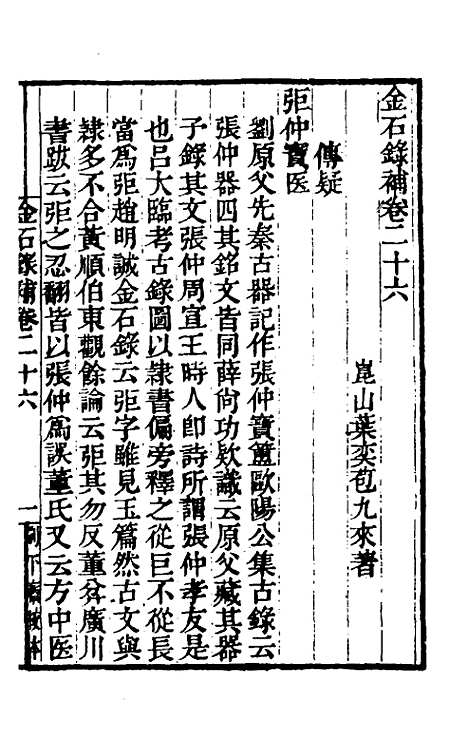 金石錄補卷二十六
崑山葉奕苞九來著
傳疑
弫仲寶医
劉原父先秦古器記作張仲寶簠歐陽公集古錄云
張仲器四其銘文皆同薛尚功欵識云原父藏其器
予錄其文張仲周宣王時人卽詩所謂張仲孝友是
也呂大臨考古錄圖以隸書偏旁釋之從巨不從長
當爲弫趙明誠金石錄云弫字雖見玉篇然古文與
隸多不合黃順伯東觀餘論云弫其勿反董弅廣川
書跋云弫之忍翻皆以張仲爲誤董氏又云方中医
金石錄補卷二十六
一